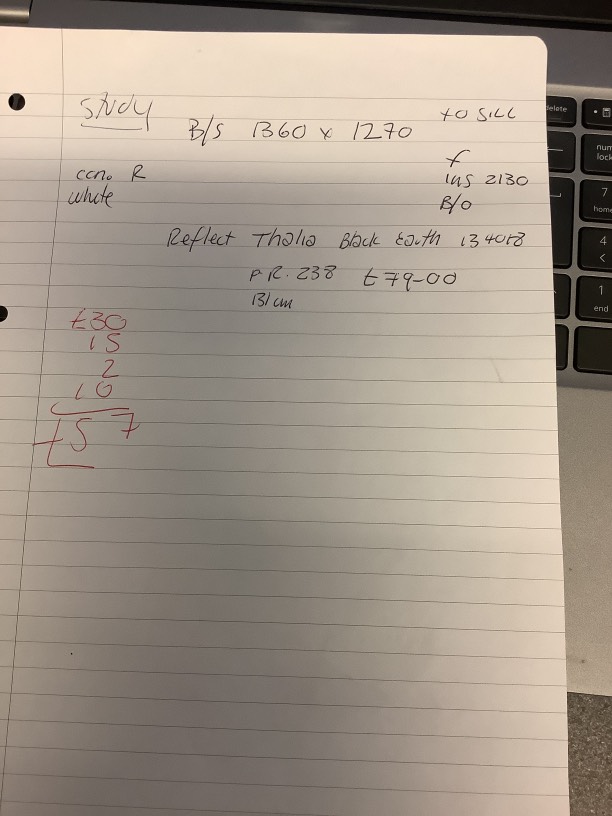 Study
to SILL
B/S 1360 x 1270
f
ccn. R
ins 2130
white
B/o
Reflect Thalia Black Earth
P.R. 238 £79-00
131cm
£30
15
2
10
£57
delete
num
lock
7
home
4
<
1
end